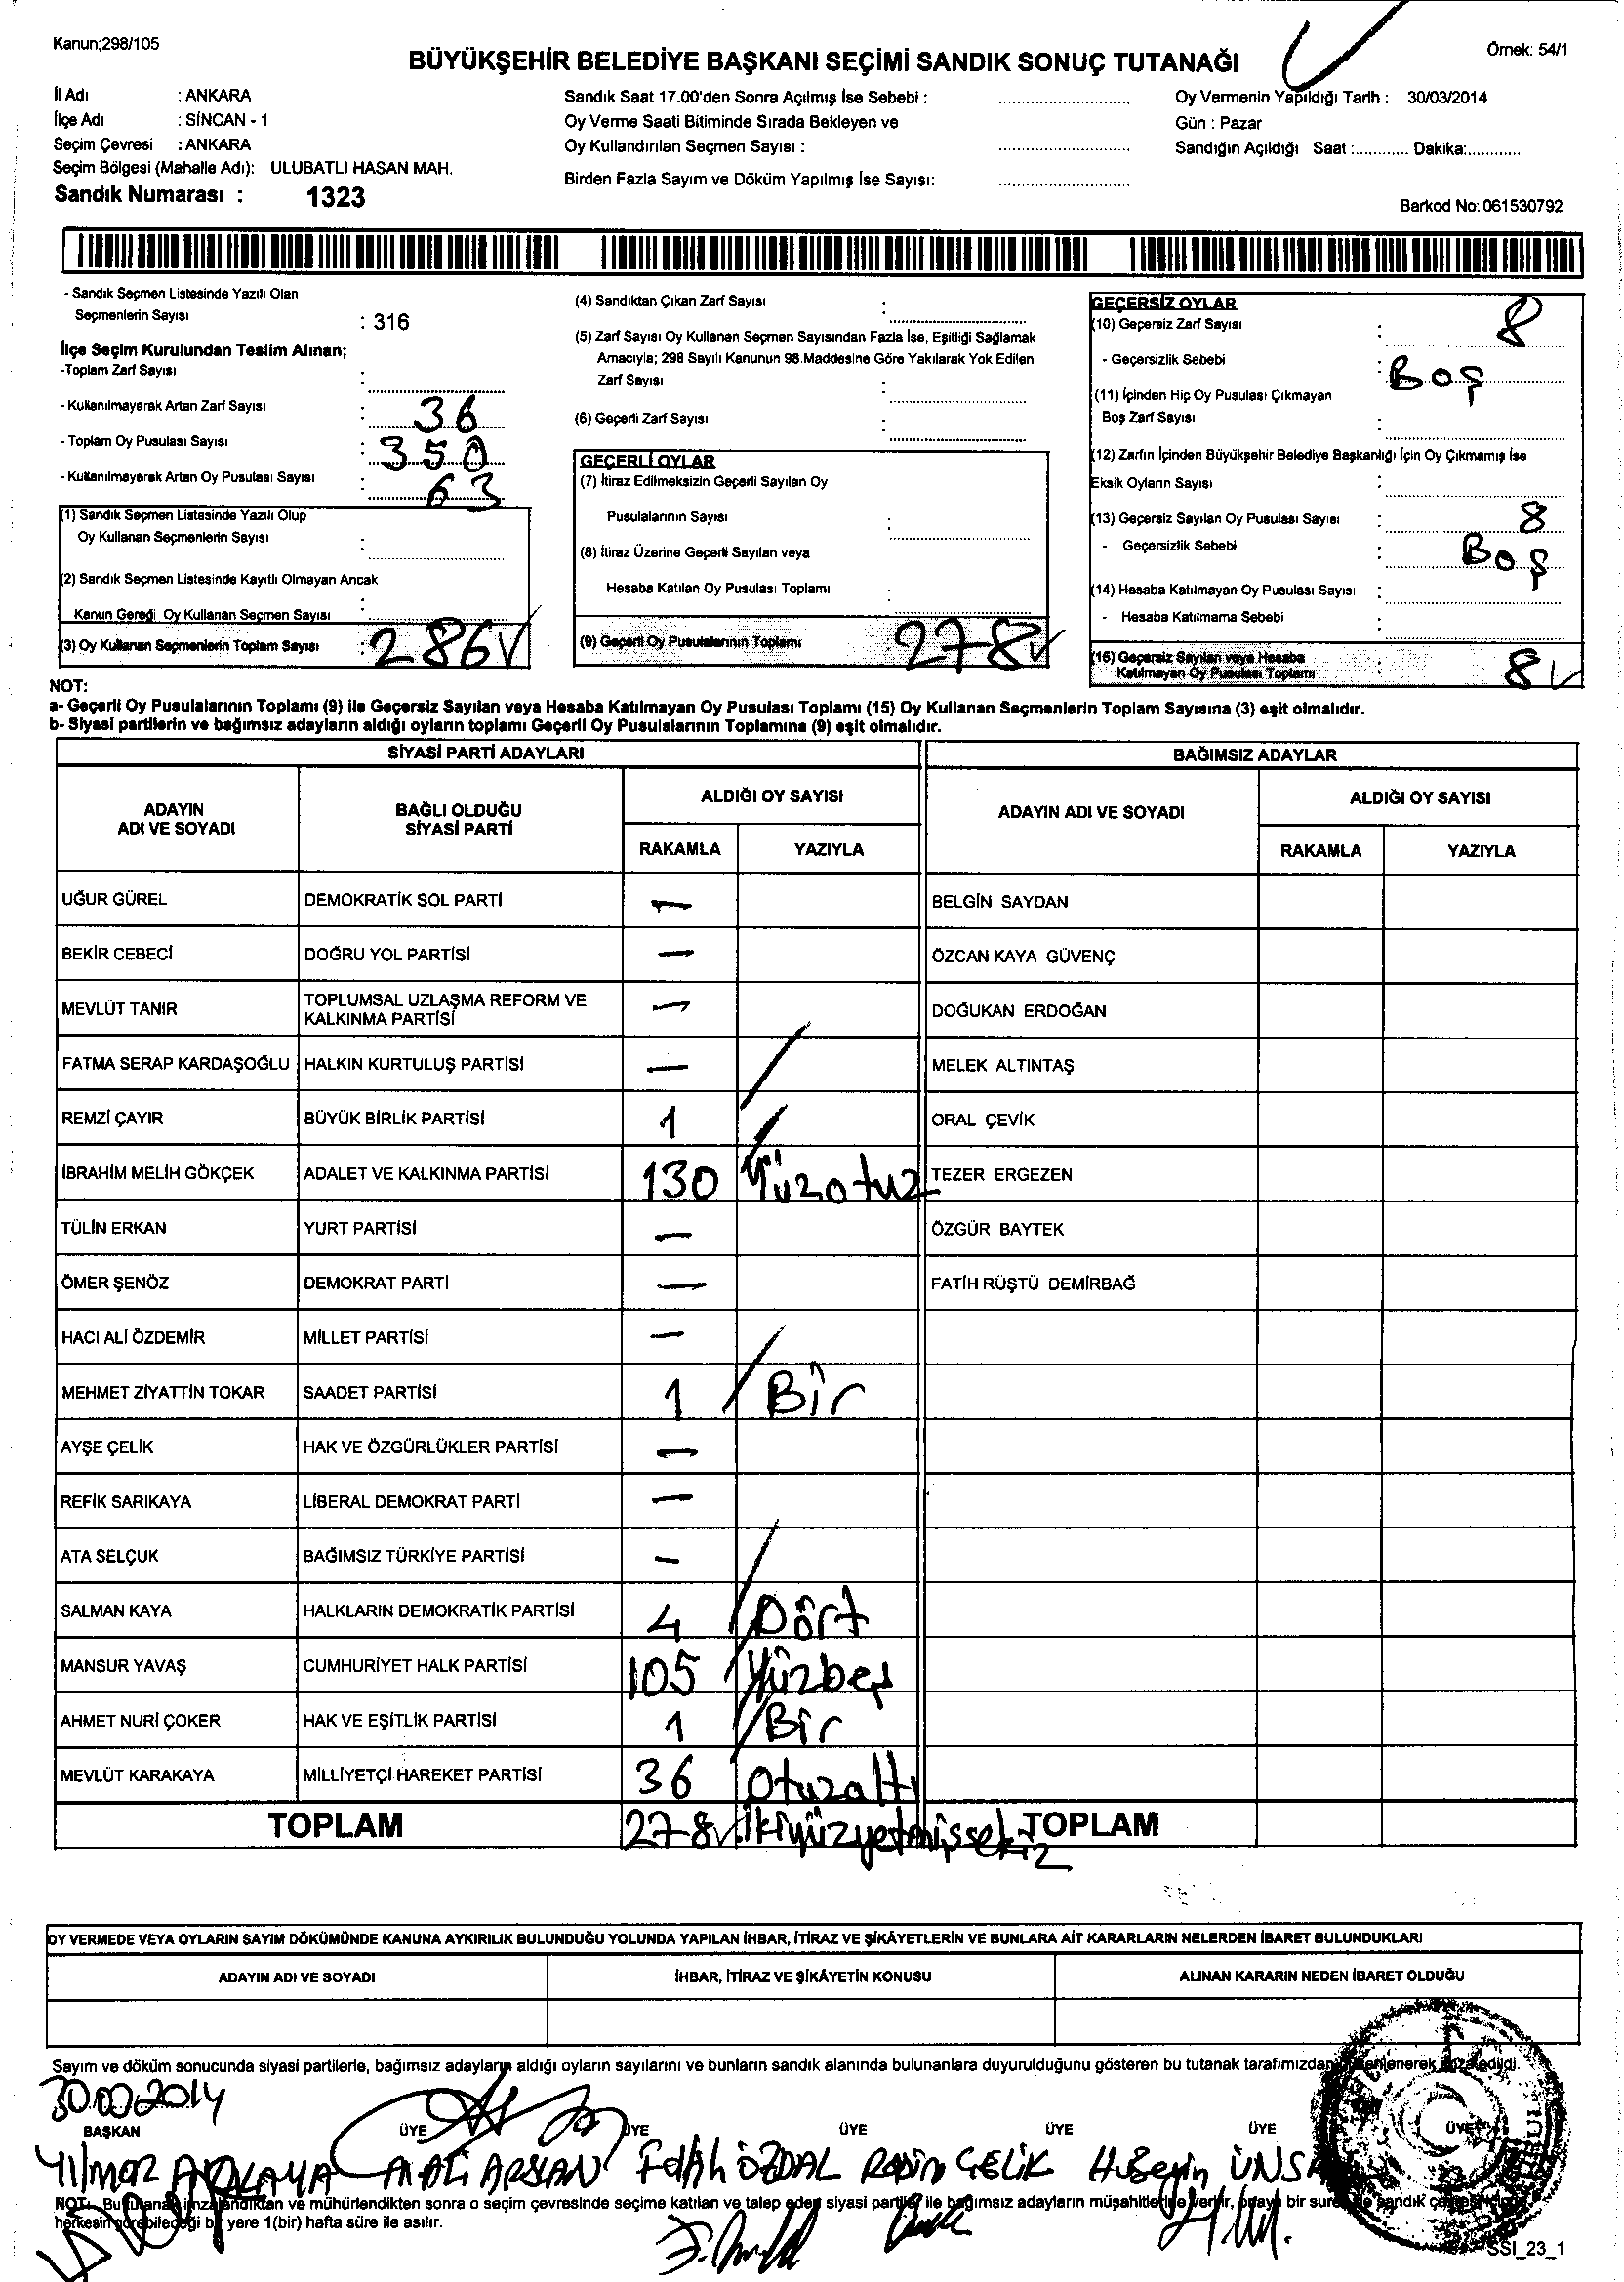 Kanun;298/105
Örnek: 54/1
BÜYÜKŞEHİR BELEDİYE BAŞKANI SEÇİMİ SANDIK SONUÇ TUTANAĞI
İl Adı : ANKARA
İlçe Adı : SİNCAN - 1
Seçim Çevresi : ANKARA
Seçim Bölgesi (Mahalle Adı): ULUBATLI HASAN MAH.
Sandık Numarası : 1323
Sandık Saat 17.00'den Sonra Açılmış İse Sebebi :
Oy Verme Saati Bitiminde Sırada Bekleyen ve
Oy Kullandırılan Seçmen Sayısı :
Birden Fazla Sayım ve Döküm Yapılmış İse Sayısı:
Oy Vermenin Yapıldığı Tarih : 30/03/2014
Gün : Pazar
Sandığın Açıldığı Saat :............ Dakika:............
Barkod No: 061530792
- Sandık Seçmen Listesinde Yazılı Olan
Seçmenlerin Sayısı : 316
İlçe Seçim Kurulundan Teslim Alınan;
-Toplam Zarf Sayısı :
- Kullanılmayarak Artan Zarf Sayısı : 36
- Toplam Oy Pusulası Sayısı : 350
- Kullanılmayarak Artan Oy Pusulası Sayısı : 63
(1) Sandık Seçmen Listesinde Yazılı Olup
Oy Kullanan Seçmenlerin Sayısı :
(2) Sandık Seçmen Listesinde Kayıtlı Olmayan Ancak
Kanun Gereği Oy Kullanan Seçmen Sayısı :
(3) Oy Kullanan Seçmenlerin Toplam Sayısı : 286
(4) Sandıktan Çıkan Zarf Sayısı :
(5) Zarf Sayısı Oy Kullanan Seçmen Sayısından Fazla İse, Eşitliği Sağlamak
Amacıyla; 298 Sayılı Kanunun 98.Maddesine Göre Yakılarak Yok Edilen
Zarf Sayısı :
(6) Geçerli Zarf Sayısı :
GEÇERLİ OYLAR
(7) İtiraz Edilmeksizin Geçerli Sayılan Oy
Pusulalarının Sayısı :
(8) İtiraz Üzerine Geçerli Sayılan veya
Hesaba Katılan Oy Pusulası Toplamı :
(9) Geçerli Oy Pusulalarının Toplamı 278
GEÇERSİZ OYLAR
(10) Geçersiz Zarf Sayısı : 8
- Geçersizlik Sebebi : Boş
(11) İçinden Hiç Oy Pusulası Çıkmayan
Boş Zarf Sayısı :
(12) Zarfın İçinden Büyükşehir Belediye Başkanlığı İçin Oy Çıkmamış İse
Eksik Oyların Sayısı :
(13) Geçersiz Sayılan Oy Pusulası Sayısı : 8
- Geçersizlik Sebebi : Boş
(14) Hesaba Katılmayan Oy Pusulası Sayısı :
- Hesaba Katılmama Sebebi :
(15) Geçersiz Sayılan veya Hesaba
Katılmayan Oy Pusulası Toplamı : 8
NOT:
a- Geçerli Oy Pusulalarının Toplamı (9) ile Geçersiz Sayılan veya Hesaba Katılmayan Oy Pusulası Toplamı (15) Oy Kullanan Seçmenlerin Toplam Sayısına (3) eşit olmalıdır.
b- Siyasi partilerin ve bağımsız adayların aldığı oyların toplamı Geçerli Oy Pusulalarının Toplamına (9) eşit olmalıdır.
SİYASİ PARTİ ADAYLARI BAĞIMSIZ ADAYLAR
ADAYIN ADI VE SOYADI
BAĞLI OLDUĞU SİYASİ PARTİ
ALDIĞI OY SAYISI
RAKAMLA YAZIYLA
ADAYIN ADI VE SOYADI
ALDIĞI OY SAYISI
RAKAMLA YAZIYLA
UĞUR GÜREL DEMOKRATİK SOL PARTİ — BELGİN SAYDAN
BEKİR CEBECİ DOĞRU YOL PARTİSİ — ÖZCAN KAYA GÜVENÇ
MEVLÜT TANIR TOPLUMSAL UZLAŞMA REFORM VE KALKINMA PARTİSİ — DOĞUKAN ERDOĞAN
FATMA SERAP KARDAŞOĞLU HALKIN KURTULUŞ PARTİSİ — MELEK ALTINTAŞ
REMZİ ÇAYIR BÜYÜK BİRLİK PARTİSİ 1 ORAL ÇEVİK
İBRAHİM MELİH GÖKÇEK ADALET VE KALKINMA PARTİSİ 130 Yüzotuz TEZER ERGEZEN
TÜLİN ERKAN YURT PARTİSİ — ÖZGÜR BAYTEK
ÖMER ŞENÖZ DEMOKRAT PARTİ — FATİH RÜŞTÜ DEMİRBAĞ
HACI ALİ ÖZDEMİR MİLLET PARTİSİ —
MEHMET ZİYATTİN TOKAR SAADET PARTİSİ 1 Bir
AYŞE ÇELİK HAK VE ÖZGÜRLÜKLER PARTİSİ —
REFİK SARIKAYA LİBERAL DEMOKRAT PARTİ —
ATA SELÇUK BAĞIMSIZ TÜRKİYE PARTİSİ —
SALMAN KAYA HALKLARIN DEMOKRATİK PARTİSİ 4 Dört
MANSUR YAVAŞ CUMHURİYET HALK PARTİSİ 105 Yüzbeş
AHMET NURİ ÇOKER HAK VE EŞİTLİK PARTİSİ 1 Bir
MEVLÜT KARAKAYA MİLLİYETÇİ HAREKET PARTİSİ 36 Otuzaltı
TOPLAM 278 İkiyüzyetmişsekiz TOPLAM
OY VERMEDE VEYA OYLARIN SAYIM DÖKÜMÜNDE KANUNA AYKIRILIK BULUNDUĞU YOLUNDA YAPILAN İHBAR, İTİRAZ VE ŞİKÂYETLERİN VE BUNLARA AİT KARARLARIN NELERDEN İBARET BULUNDUKLARI
ADAYIN ADI VE SOYADI İHBAR, İTİRAZ VE ŞİKÂYETİN KONUSU ALINAN KARARIN NEDEN İBARET OLDUĞU
Sayım ve döküm sonucunda siyasi partilerle, bağımsız adayların aldığı oyların sayılarını ve bunların sandık alanında bulunanlara duyurulduğunu gösteren bu tutanak tarafımızdan düzenlenerek imza edildi.
BAŞKAN ÜYE ÜYE ÜYE ÜYE ÜYE ÜYE
Yılmaz ALİ ARSLAN Fatih ÖZDAL ÇELİK Hüseyin
NOT: Bu tutanak imzalandıktan ve mühürlendikten sonra o seçim çevresinde seçime katılan ve talep eden siyasi partiler ile bağımsız adayların müşahitlerine verilir, onaylı bir sureti de sandık
herkesin görebileceği bir yere 1(bir) hafta süre ile asılır.
SSI_23_1